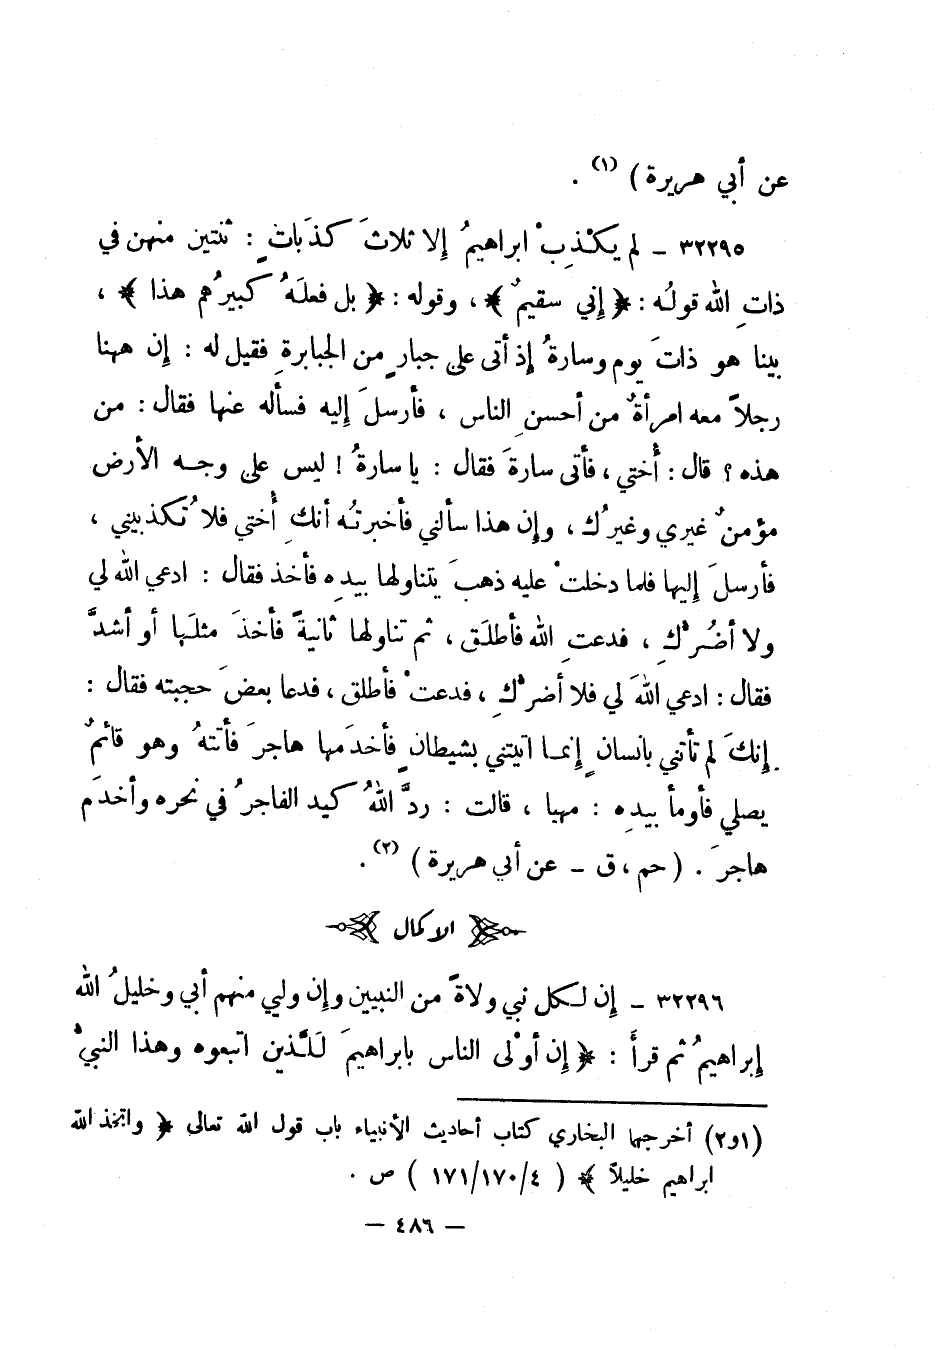 عن أبي هريرة) (١) .
٣٢٢٩٥ ـ لم يكذبْ ابراهيمُ إلا ثلاثَ كذَباتٍ : ثنتين منهن في
ذاتِ الله قولُه : ﴿ إني سقيمٌ ﴾ ، وقوله : ﴿ بل فعلَهُ كبيرُهم هذا ﴾ ،
بينا هو ذاتَ يوم وسارةُ إذ أتى على جبارٍ من الجبابرةِ فقيل له : إن ههنا
رجلاً معه امرأةٌ من أحسنِ الناس ، فأرسلَ إليه فسأله عنها فقال : من
هذه ؟ قال : أُختي ، فأتى سارةَ فقال : يا سارةُ ! ليس على وجه الأرض
مؤمنٌ غيري وغيرُك ، وإن هذا سألني فأخبرتُه أنكِ أُختي فلا تُكذبيني ،
فأرسلَ إليها فلما دخلتْ عليه ذهبَ يتناولها بيدِه فأخذ فقال : ادعي الله لي
ولا أضُرُّكِ ، فدعتِ الله فأطلَق ، ثم تناولها ثانيةً فأخذَ مثلَها أو أشدَّ
فقال : ادعي اللهَ لي فلا أضرُّكِ ، فدعتْ فأطلق ، فدعا بعضَ حجبته فقال :
إنكَ لم تأتني بانسانٍ إنما اتيتني بشيطانٍ فأخدَمها هاجرَ فأتتهُ وهو قائمٌ
يصلي فأومأ بيدِه : مهيا ، قالت : ردَّ اللهُ كيد الفاجرُ في نحره وأخدَم
هاجرَ . ( حم ، ق ـ عن أبي هريرة ) (٢) .
الاكمال
٣٢٢٩٦ ـ إن لكل نبي ولاةً من النبيين وإن وليي منهم أبي وخليلُ الله
إبراهيمُ ثم قرأَ : ﴿ إن أوْلى الناس بابراهيمَ لَلَّذين اتبعوه وهذا النبيُّ
(١و٢) أخرجها البخاري كتاب أحاديث الأنبياء باب قول الله تعالى ﴿ واتخذ الله
ابراهيم خليلاً ﴾ ( ٤/١٧٠/١٧١ ) ص .
— ٤٨٦ —